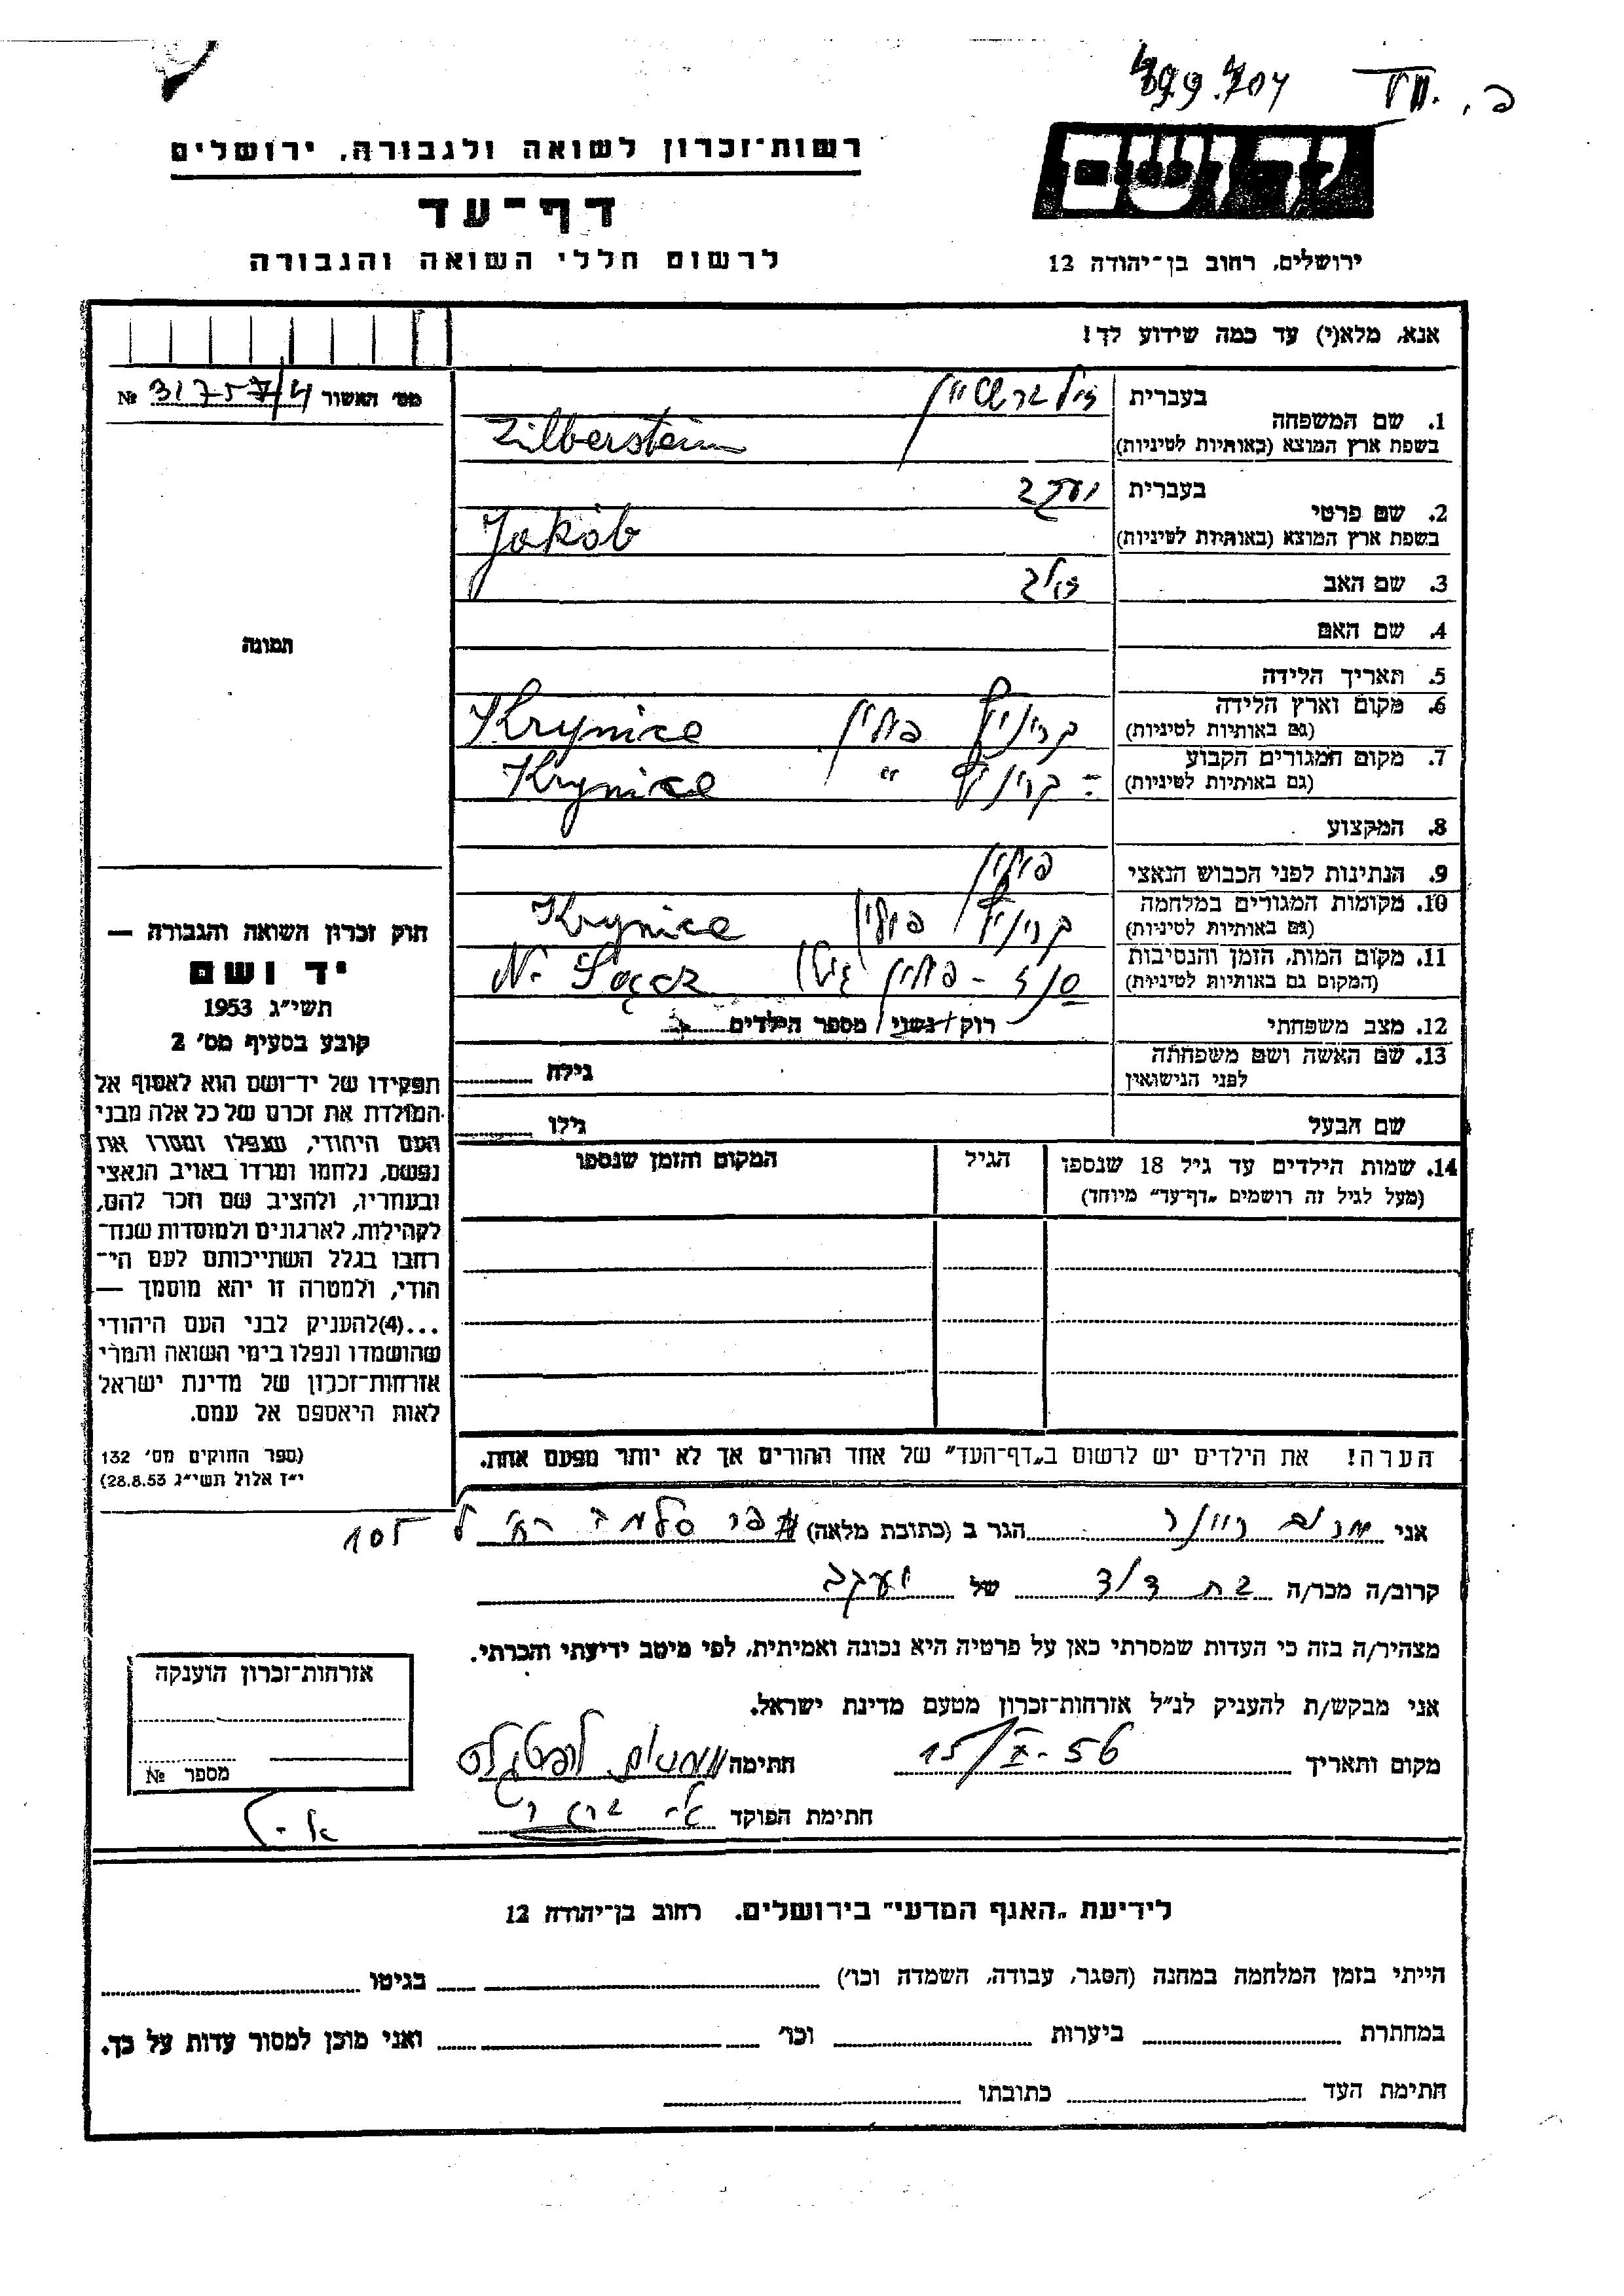 499.704 VII. פ.
רשות־זכרון לשואה ולגבורה, ירושלים
דף־עד
לרשום חללי השואה והגבורה
יד ושם
ירושלים, רחוב בן־יהודה 12
אנא, מלא(י) עד כמה שידוע לך!
מס׳ האשור 31757/4 №
1. שם המשפחה בעברית זילברשטיין
בשפת ארץ המוצא (באותיות לטיניות) Zilberstein
2. שם פרטי בעברית יעקב
בשפת ארץ המוצא (באותיות לטיניות) Jakób
3. שם האב
4. שם האם
5. תאריך הלידה
6. מקום וארץ הלידה
(גם באותיות לטיניות) קריניץ פולין Krynice
7. מקום המגורים הקבוע
(גם באותיות לטיניות) קריניץ " Krynice
8. המקצוע
9. הנתינות לפני הכבוש הנאצי פולין
10. מקומות המגורים במלחמה
(גם באותיות לטיניות) קריניץ פולין Krynice
11. מקום המות, הזמן והנסיבות
(המקום גם באותיות לטיניות) סנץ - פולין N. Sącz
12. מצב משפחתי רוק/נשוי/ מספר הילדים
13. שם האשה ושם משפחתה
לפני הנישואין גילה
שם הבעל גילו
14. שמות הילדים עד גיל 18 שנספו הגיל המקום והזמן שנספו
(מעל לגיל זה רושמים „דף־עד” מיוחד)
הערה! את הילדים יש לרשום ב„דף־העד” של אחד ההורים אך לא יותר מפעם אחת.
תמונה
חוק זכרון השואה והגבורה —
יד ושם
תשי״ג 1953
קובע בסעיף מס׳ 2
תפקידו של יד־ושם הוא לאסוף אל
המולדת את זכרם של כל אלה מבני
העם היהודי, שנפלו ומסרו את
נפשם, נלחמו ומרדו באויב הנאצי
ובעוזריו, ולהציב שם וזכר להם,
לקהילות, לארגונים ולמוסדות שנח־
רבו בגלל השתייכותם לעם הי־
הודי, ולמטרה זו יהא מוסמך —
...(4)להעניק לבני העם היהודי
שהושמדו ונפלו בימי השואה והמרי
אזרחות־זכרון של מדינת ישראל
לאות היאספם אל עמם.
(ספר החוקים מס׳ 132
י״ז אלול תשי״ג 28.8.53)
אני הגר ב (כתובת מלאה) 105
קרוב/ה מכר/ה בת דוד של יעקב
מצהיר/ה בזה כי העדות שמסרתי כאן על פרטיה היא נכונה ואמיתית, לפי מיטב ידיעתי והכרתי.
אני מבקש/ת להעניק לנ״ל אזרחות־זכרון מטעם מדינת ישראל.
מקום ותאריך 15/X-56 חתימה
חתימת הפוקד
אזרחות־זכרון הוענקה
מספר №
לידיעת „האגף המדעי” בירושלים. רחוב בן־יהודה 12
הייתי בזמן המלחמה במחנה (הסגר, עבודה, השמדה וכו׳) בגיטו
במחתרת ביערות וכו׳ ואני מוכן למסור עדות על כך.
חתימת העד כתובתו